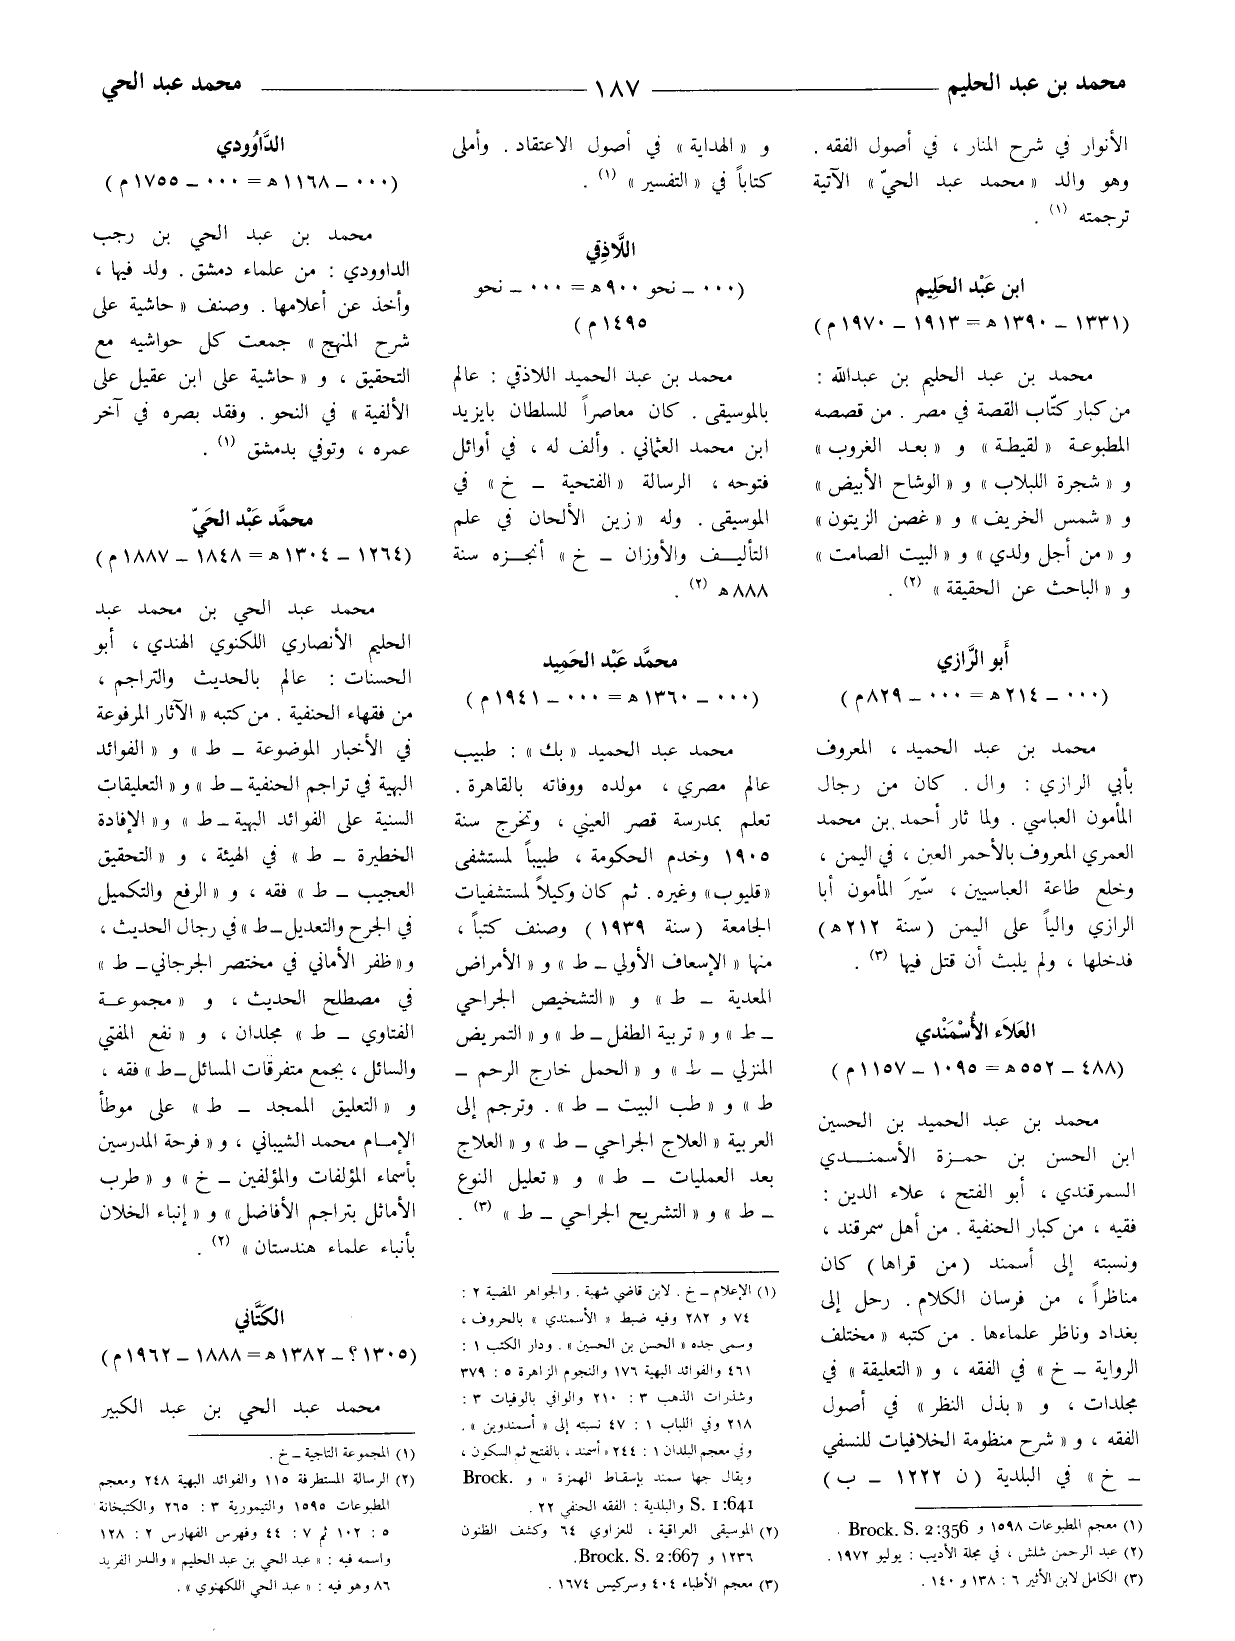 محمد بن عبد الحليم ــــــ ١٨٧ ــــــ محمد عبد الحي
الأنوار في شرح المنار ، في أصول الفقه .
وهو والد « محمد عبد الحيّ » الآتية
ترجمته (١) .
ابن عَبْد الحَلِيم
(١٣٣١ – ١٣٩٠ ه = ١٩١٣ – ١٩٧٠ م)
محمد بن عبد الحليم بن عبدالله :
من كبار كتّاب القصة في مصر . من قصصه
المطبوعة « لقيطة » و « بعد الغروب »
و « شجرة اللبلاب » و « الوشاح الأبيض »
و « شمس الخريف » و « غصن الزيتون »
و « من أجل ولدي » و « البيت الصامت »
و « الباحث عن الحقيقة » (٢) .
أَبو الرَّازي
(٠٠٠ – ٢١٤ ه = ٠٠٠ – ٨٢٩م)
محمد بن عبد الحميد ، المعروف
بأبي الرازي : وال . كان من رجال
المأمون العباسي . ولما ثار أحمد بن محمد
العمري المعروف بالأحمر العين ، في اليمن ،
وخلع طاعة العباسيين ، سيّرَ المأمون أبا
الرازي والياً على اليمن (سنة ٢١٢ ه)
فدخلها ، ولم يلبث أن قتل فيها (٣) .
العَلاَء الأُسْمَنْدي
(٤٨٨ – ٥٥٢ ه = ١٠٩٥ – ١١٥٧ م)
محمد بن عبد الحميد بن الحسين
ابن الحسن بن حمزة الأسمندي
السمرقندي ، أبو الفتح ، علاء الدين :
فقيه ، من كبار الحنفية . من أهل سمرقند ،
ونسبته إلى أسمند (من قراها) كان
مناظراً ، من فرسان الكلام . رحل إلى
بغداد وناظر علماءها . من كتبه « مختلف
الرواية – خ » في الفقه ، و « التعليقة » في
مجلدات ، و « بذل النظر » في أصول
الفقه ، و « شرح منظومة الخلافيات للنسفي
– خ » في البلدية (ن ١٢٢٢ – ب)
(١) معجم المطبوعات ١٥٩٨ و Brock. S. 2:356 .
(٢) عبد الرحمن شلش ، في مجلة الأديب : يوليو ١٩٧٢ .
(٣) الكامل لابن الأثير ٦ : ١٣٨ و ١٤٠ .
و « الهداية » في أصول الاعتقاد . وأملى
كتاباً في « التفسير » (١) .
اللَّاذِقي
(٠٠٠ – نحو ٩٠٠ ه = ٠٠٠ – نحو
١٤٩٥ م)
محمد بن عبد الحميد اللاذقي : عالم
بالموسيقى . كان معاصراً للسلطان بايزيد
ابن محمد العثماني . وألف له ، في أوائل
فتوحه ، الرسالة « الفتحية – خ » في
الموسيقى . وله « زين الألحان في علم
التأليف والأوزان – خ » أنجزه سنة
٨٨٨ ه (٢) .
محمَّد عَبْد الحَمِيد
(٠٠٠ – ١٣٦٠ ه = ٠٠٠ – ١٩٤١ م)
محمد عبد الحميد « بك » : طبيب
عالم مصري ، مولده ووفاته بالقاهرة .
تعلم بمدرسة قصر العيني ، وتخرج سنة
١٩٠٥ وخدم الحكومة ، طبيباً لمستشفى
« قليوب » وغيره . ثم كان وكيلاً لمستشفيات
الجامعة (سنة ١٩٣٩) وصنف كتباً ،
منها « الإسعاف الأولي – ط » و « الأمراض
المعدية – ط » و « التشخيص الجراحي
– ط » و « تربية الطفل – ط » و « التمريض
المنزلي – ط » و « الحمل خارج الرحم –
ط » و « طب البيت – ط » . وترجم إلى
العربية « العلاج الجراحي – ط » و « العلاج
بعد العمليات – ط » و « تعليل النوع
– ط » و « التشريح الجراحي – ط » (٣) .
(١) الإعلام – خ . لابن قاضي شهبة . والجواهر المضية ٢ :
٧٤ و ٢٨٢ وفيه ضبط « الأسمندي » بالحروف ،
وسمى جده « الحسن بن الحسين » . ودار الكتب ١ :
٤٦١ والفوائد البهية ١٧٦ والنجوم الزاهرة ٥ : ٣٧٩
وشذرات الذهب ٣ : ٢١٠ والوافي بالوفيات ٣ :
٢١٨ وفي اللباب ١ : ٤٧ نسبته إلى « أسمندوين » .
وفي معجم البلدان ١ : ٢٤٤ « أسمند ، بالفتح ثم السكون ،
ويقال لها سمند بإسقاط الهمزة » و Brock.
S. 1:641 والبلدية : الفقه الحنفي ٢٢ .
(٢) الموسيقى العراقية ، للعزاوي ٦٤ وكشف الظنون
١٢٣٦ و Brock. S. 2:667.
(٣) معجم الأطباء ٤٠٤ وسركيس ١٦٧٤ .
الدَّاوُودي
(٠٠٠ – ١١٦٨ ه = ٠٠٠ – ١٧٥٥ م)
محمد بن عبد الحي بن رجب
الداوودي : من علماء دمشق . ولد فيها ،
وأخذ عن أعلامها . وصنف « حاشية على
شرح المنهج » جمعت كل حواشيه مع
التحقيق ، و « حاشية على ابن عقيل على
الألفية » في النحو . وفقد بصره في آخر
عمره ، وتوفي بدمشق (١) .
محمَّد عَبْد الحَيّ
(١٢٦٤ – ١٣٠٤ ه = ١٨٤٨ – ١٨٨٧ م)
محمد عبد الحي بن محمد عبد
الحليم الأنصاري اللكنوي الهندي ، أبو
الحسنات : عالم بالحديث والتراجم ،
من فقهاء الحنفية . من كتبه « الآثار المرفوعة
في الأخبار الموضوعة – ط » و « الفوائد
البهية في تراجم الحنفية – ط » و « التعليقات
السنية على الفوائد البهية – ط » و « الإفادة
الخطيرة – ط » في الهيئة ، و « التحقيق
العجيب – ط » فقه ، و « الرفع والتكميل
في الجرح والتعديل – ط » في رجال الحديث ،
و « ظفر الأماني في مختصر الجرجاني – ط »
في مصطلح الحديث ، و « مجموعة
الفتاوي – ط » مجلدان ، و « نفع المفتي
والسائل ، بجمع متفرقات المسائل – ط » فقه ،
و « التعليق الممجد – ط » على موطأ
الإمام محمد الشيباني ، و « فرحة المدرسين
بأسماء المؤلفات والمؤلفين – خ » و « طرب
الأماثل بتراجم الأفاضل » و « إنباء الخلان
بأنباء علماء هندستان » (٢) .
الكتَّاني
(١٣٠٥؟ – ١٣٨٢ ه = ١٨٨٨ – ١٩٦٢م)
محمد عبد الحي بن عبد الكبير
(١) المجموعة التاجية – خ .
(٢) الرسالة المستطرفة ١١٥ والفوائد البهية ٢٤٨ ومعجم
المطبوعات ١٥٩٥ والتيمورية ٣ : ٢٦٥ والكتبخانة
٥ : ١٠٢ ثم ٧ : ٤٤ وفهرس الفهارس ٢ : ١٢٨
واسمه فيه : « عبد الحي بن عبد الحليم » والدر الفريد
٨٦ وهو فيه : « عبد الحي اللكهنوي » .